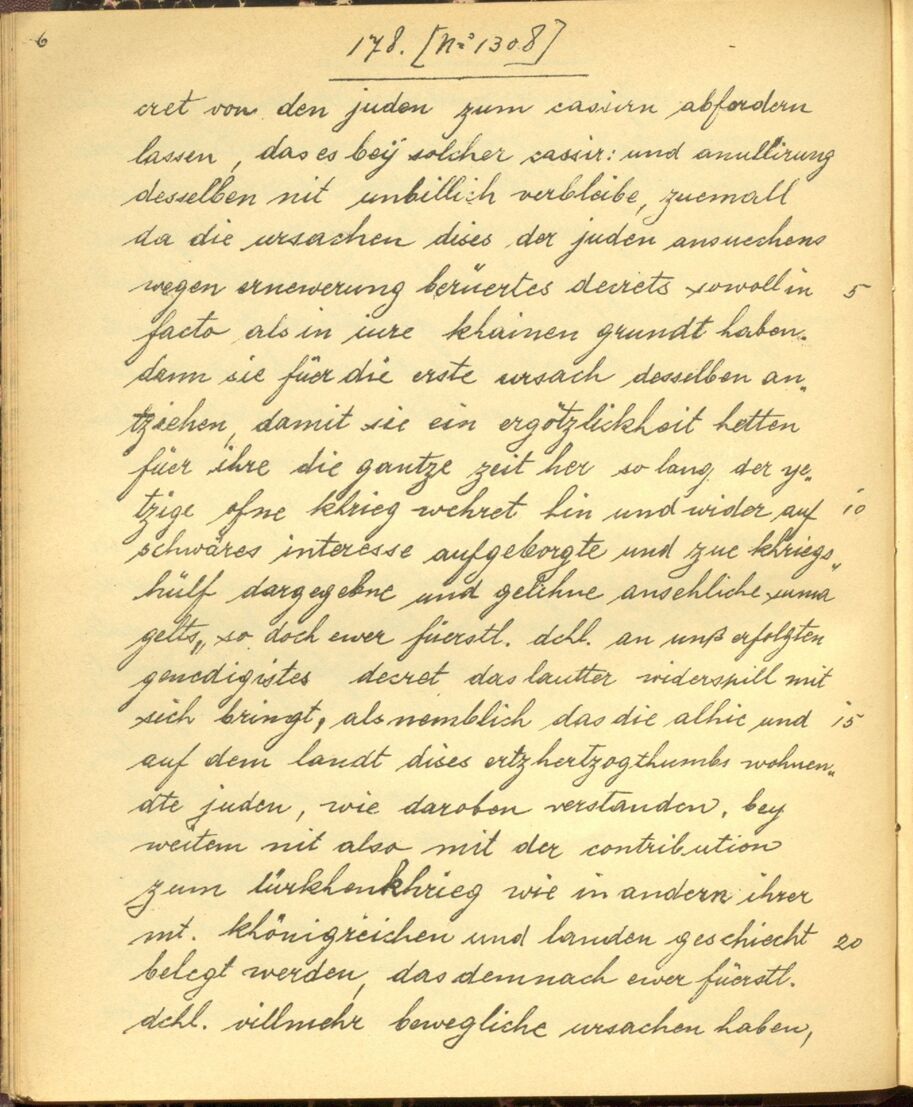 6
178. [No 1308]
cret von den juden zum cassiern abfordern
lassen, das es beÿ solcher cassir: und anullirung
desselben nit unbillich verbleibe, zuemall
da die ursachen dises der juden ansuechens
wegen ernewerung berüertes decrets sowoll in 5
facto als in iure khainen grundt haben.
dann sie füer die erste ursach desselben an„
tziehen, damit sie ein ergötzlickheit hetten
füer ihre die gantze zeit her so lang der ye„
tzige ofne khrieg wehret hin und wider auf 10
schwäres interesse aufgeborgte und zue khriegs„
hülf dargegebne und gelihne ansehliche suma
gelts„ so doch ewer füerstl. dchl. an unß erfolgten
genedigistes decret das lautter widerspill mit
sich bringt, als nemblich das die alhie und 15
auf dem landt dises ertzhertzogthumbs wohnen„
dte juden, wie daroben verstanden, bey
weitem nit also mit der contribution
zum türkhenkhrieg wie in andern ihrer
mt. khönigreichen und landen geschiecht 20
belegt werden, das demnach ewer füerstl.
dchl. villmehr bewegliche ursachen haben,